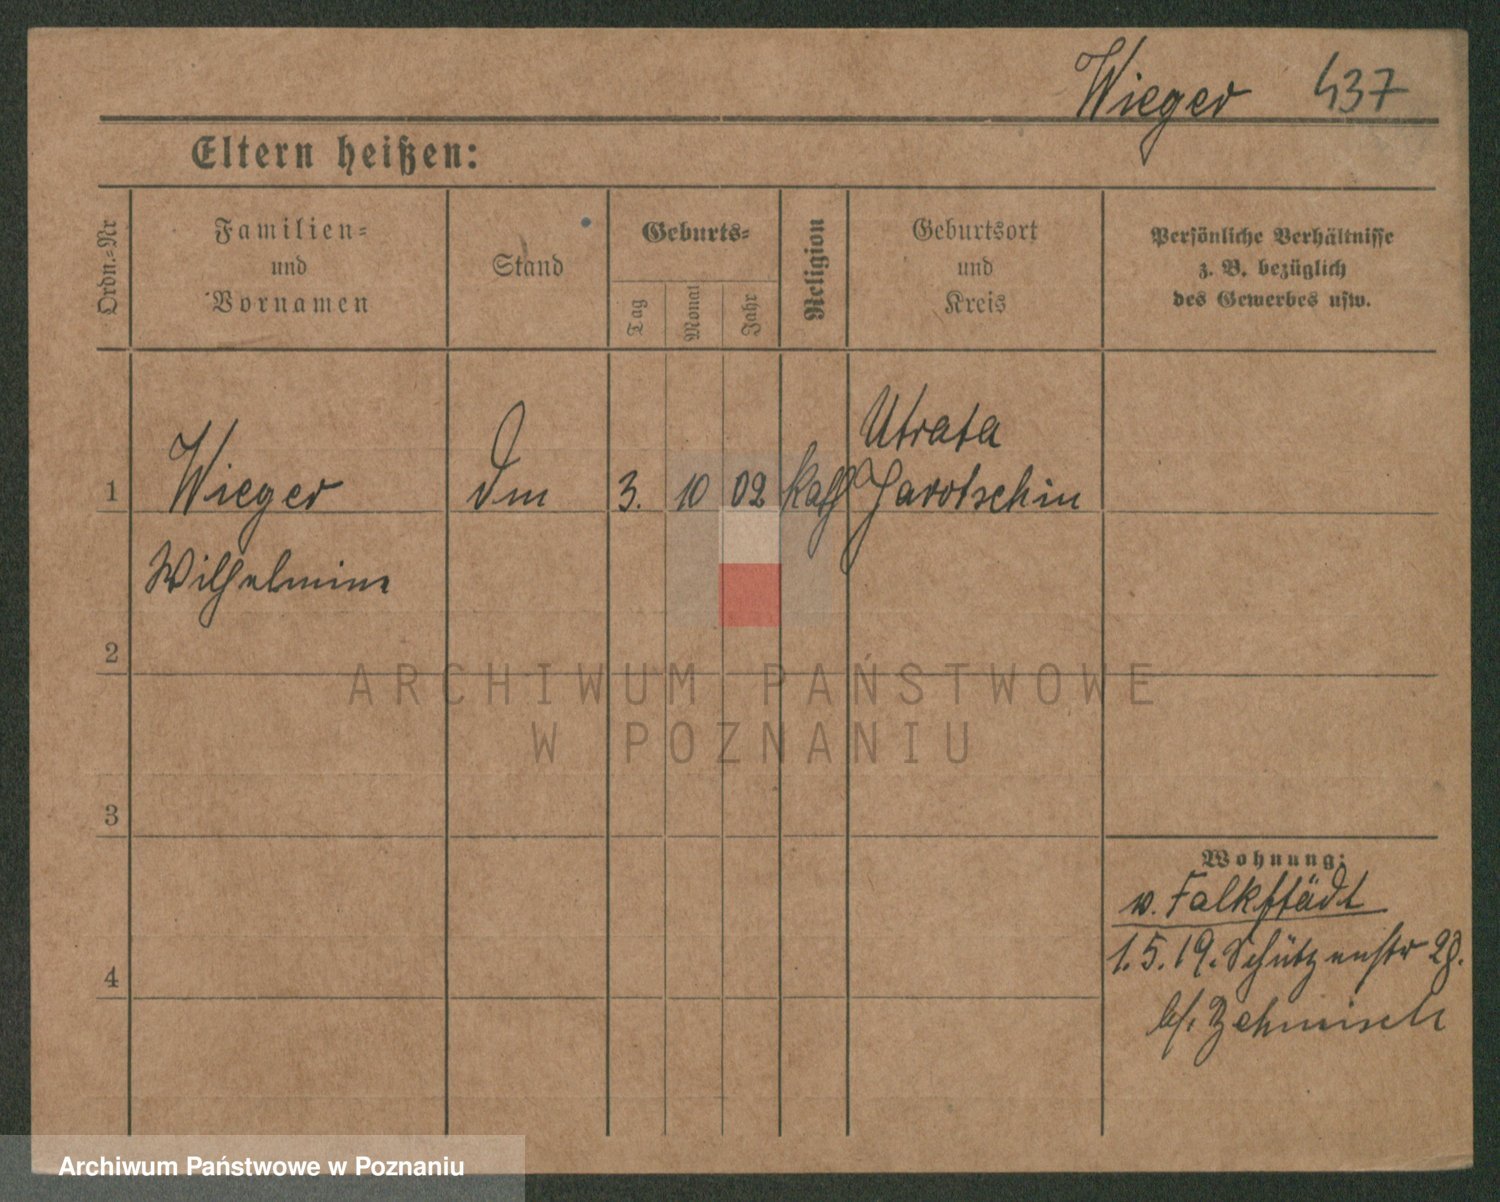 Wieger 437
Eltern heißen:
Ordn.-Nr
Familien-
und
Vornamen
Stand
Geburts-
Tag
Monat
Jahr
Religion
Geburtsort
und
Kreis
Persönliche Verhältnisse
z. B. bezüglich
des Gewerbes usw.
Utrata
1 Wieger Dm 3. 10 02 kath Jarotschin
Wilhelmine
2
3
Wohnung:
v. Falkstädt
1.5.19. Schützenstr 28.
4
b/. Zehmisch
ARCHIWUM PAŃSTWOWE
W POZNANIU
Archiwum Państwowe w Poznaniu